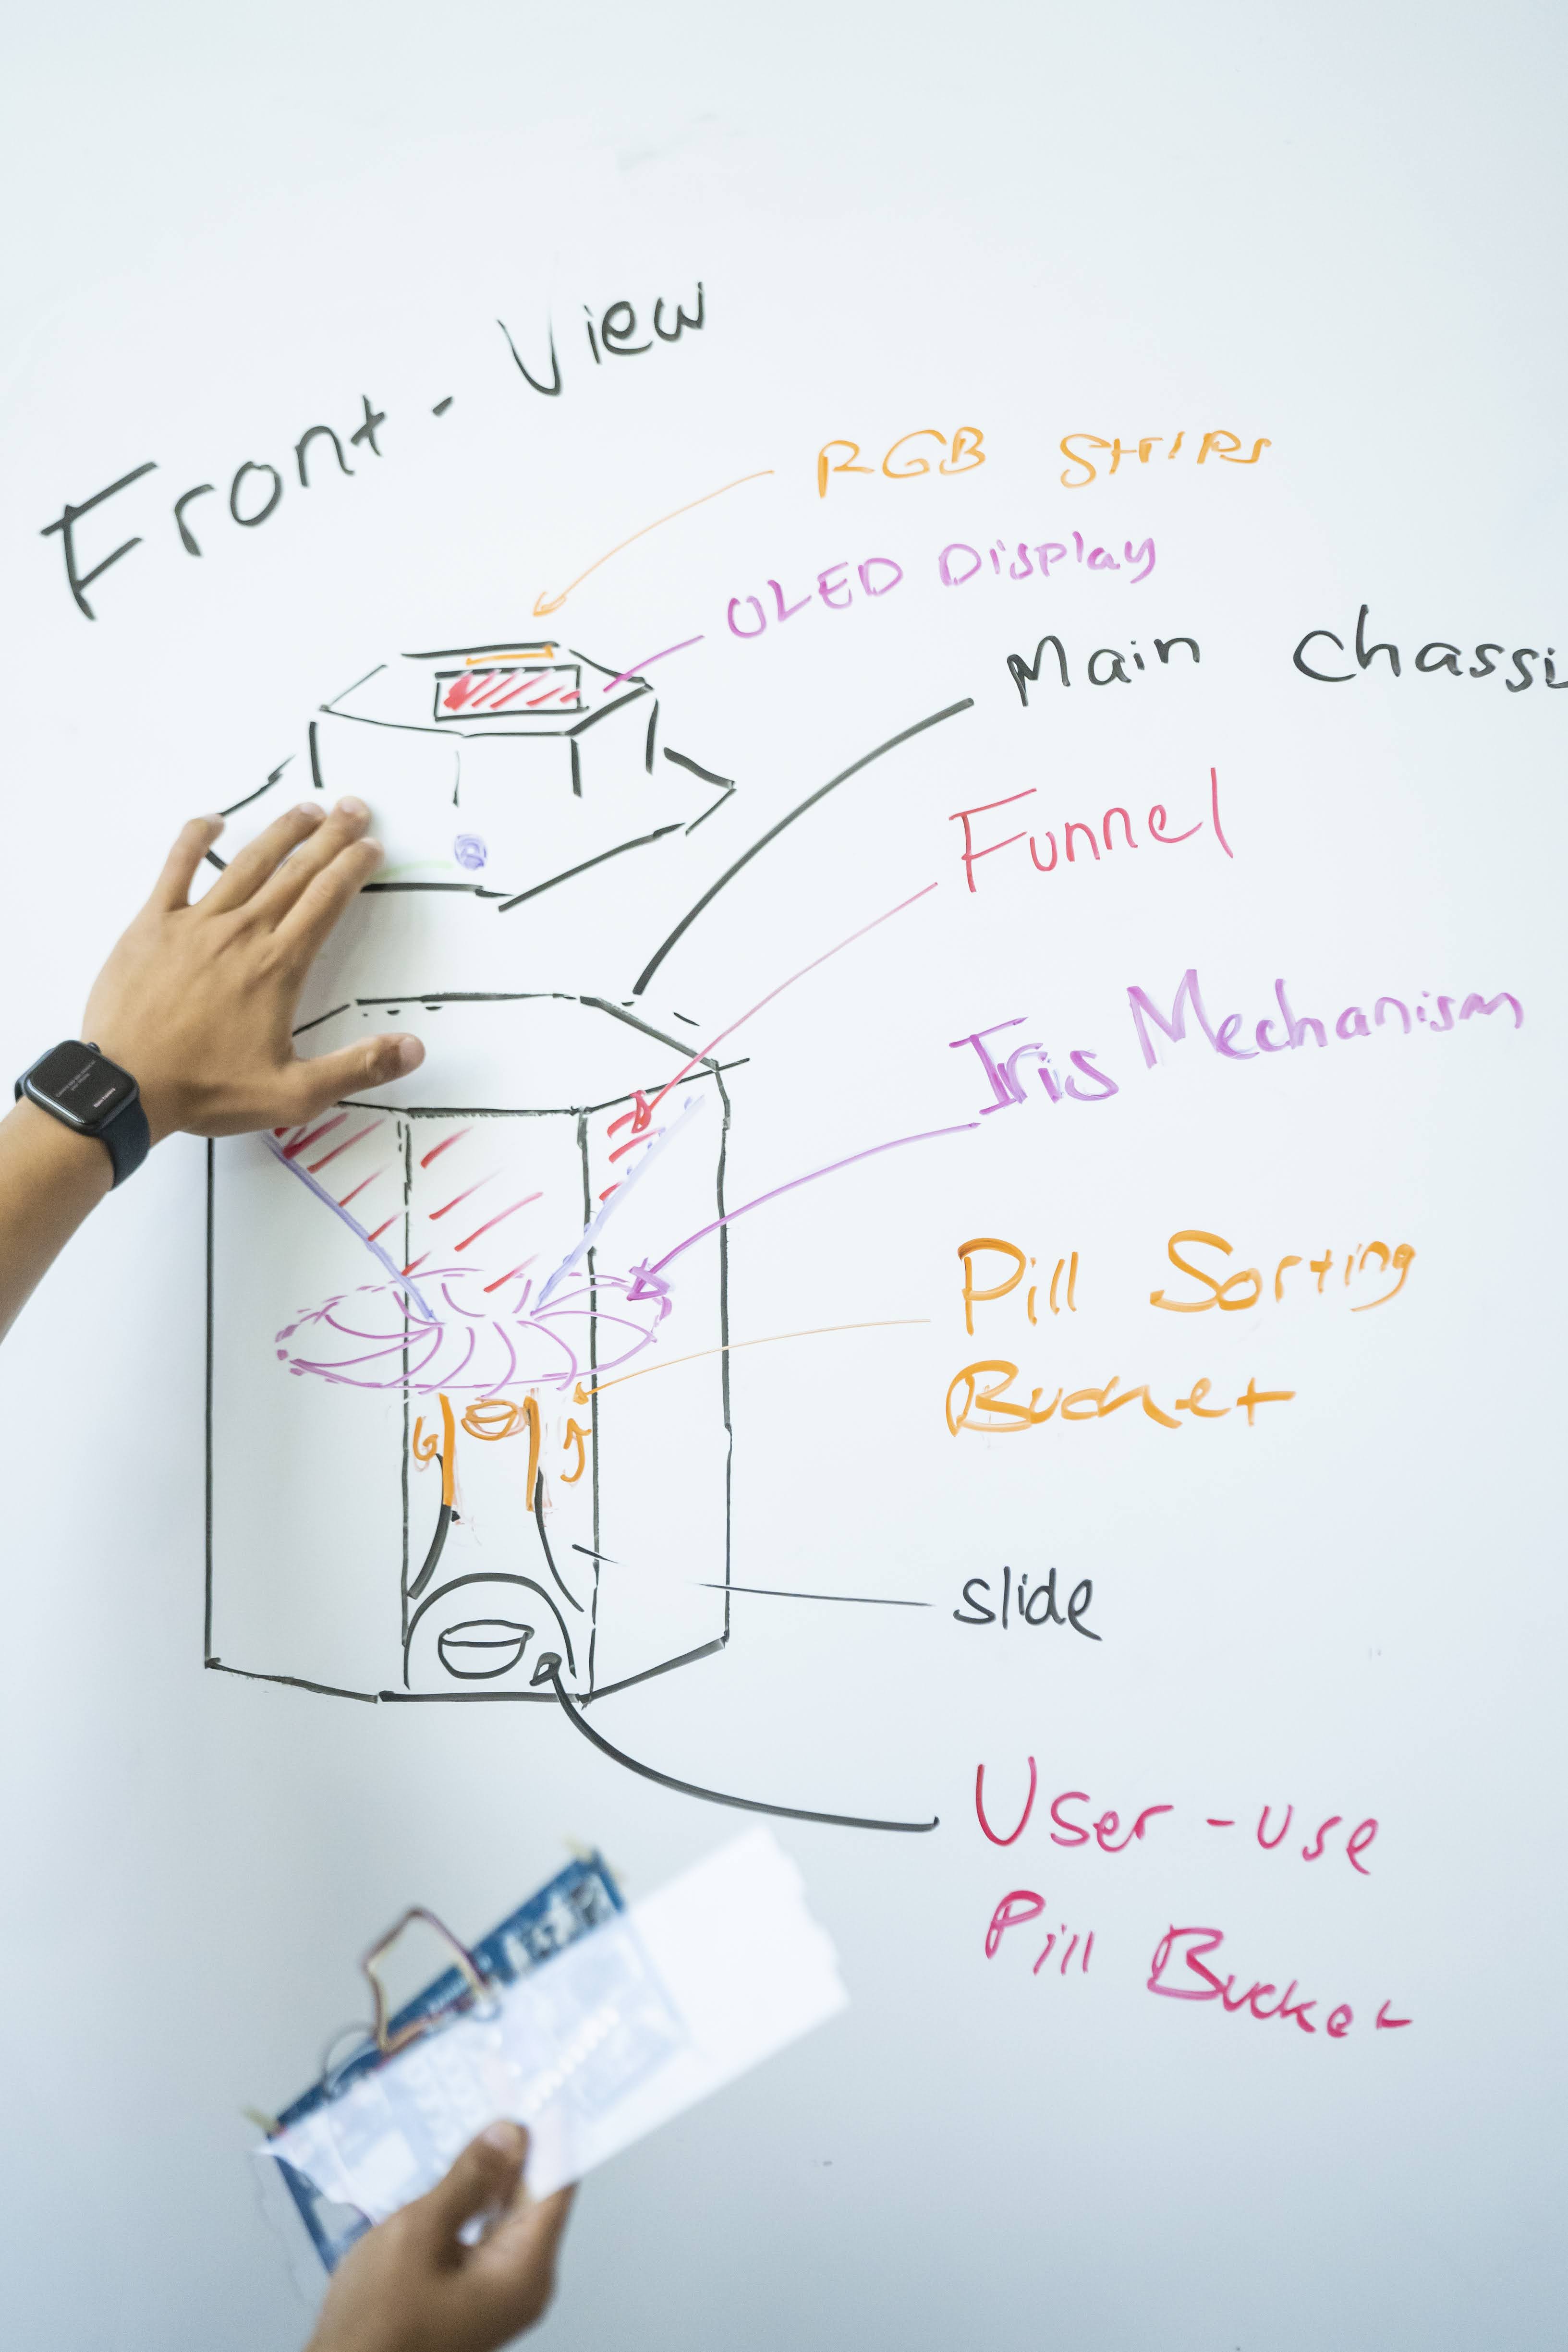 Front - View
RGB Strips
OLED Display
Main Chassi
Funnel
Iris Mechanism
Pill Sorting
Bucket
slide
User - use
Pill Bucket